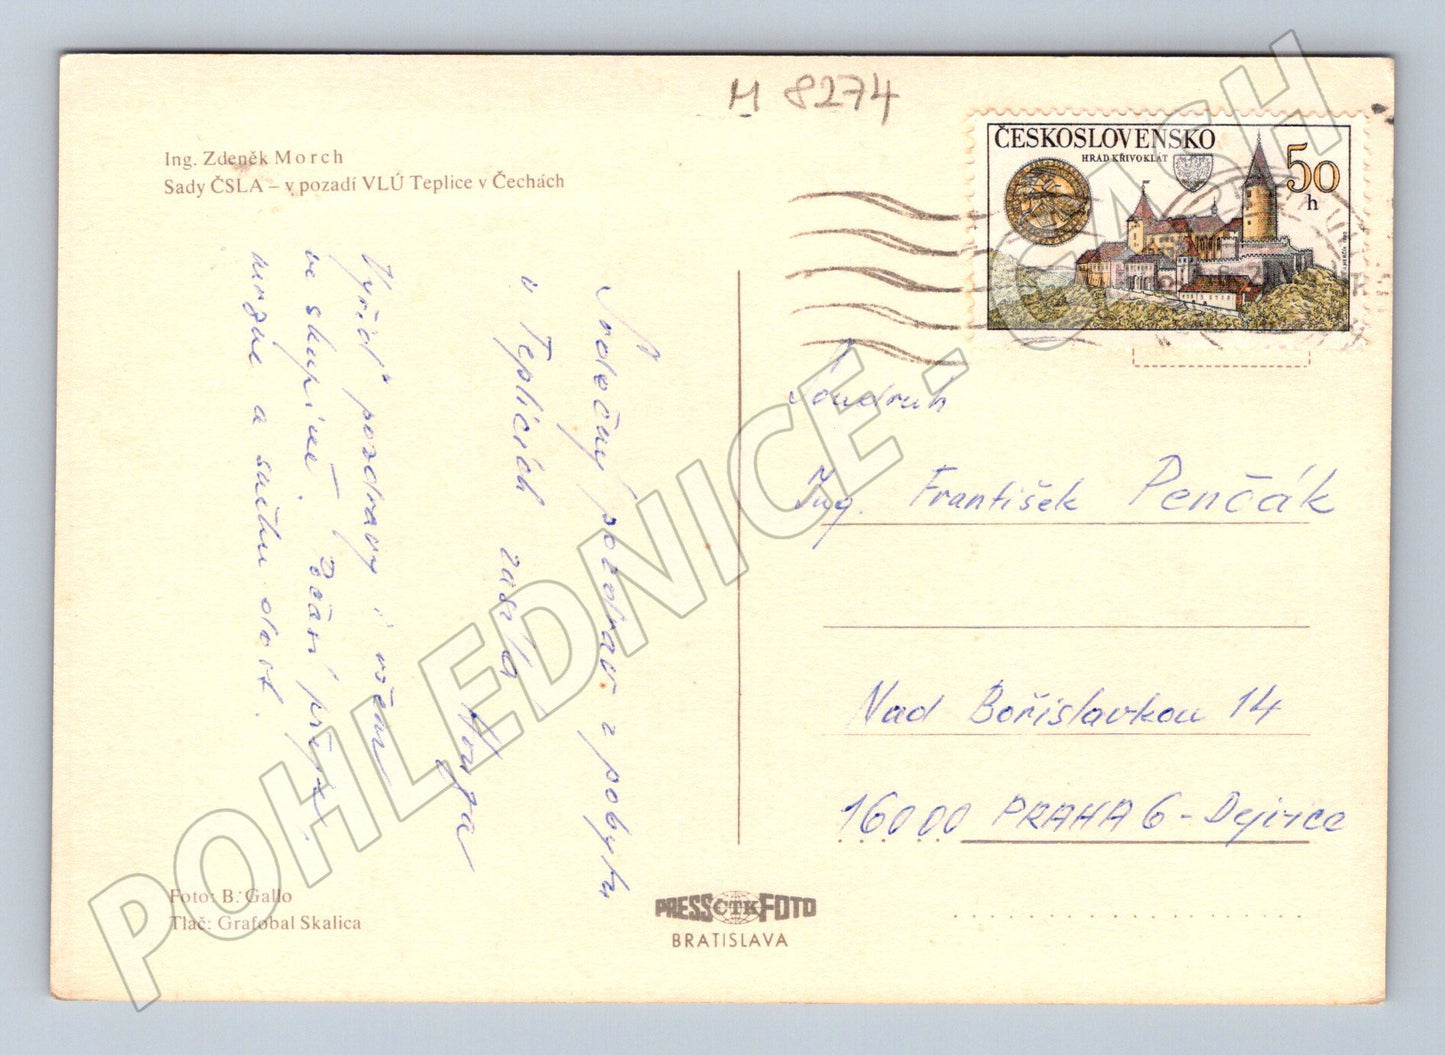 M 8274
Ing. Zdeněk Morch
Sady ČSLA – v pozadí VLÚ Teplice v Čechách
ČESKOSLOVENSKO
HRAD KŘIVOKLÁT
50
h
Srdečný pozdrav z pobytu
v Teplicích zasílá
Honza
Vyřiď pozdravy i všem
ve skupině. Počasí
a
Soudruh
Ing. František Penčák
Nad Bořislavkou 14
16000 PRAHA 6 - Dejvice
Foto: B. Gallo
Tlač: Grafobal Skalica
PRESS ČTK FOTO
BRATISLAVA
POHLEDNICE - CASH